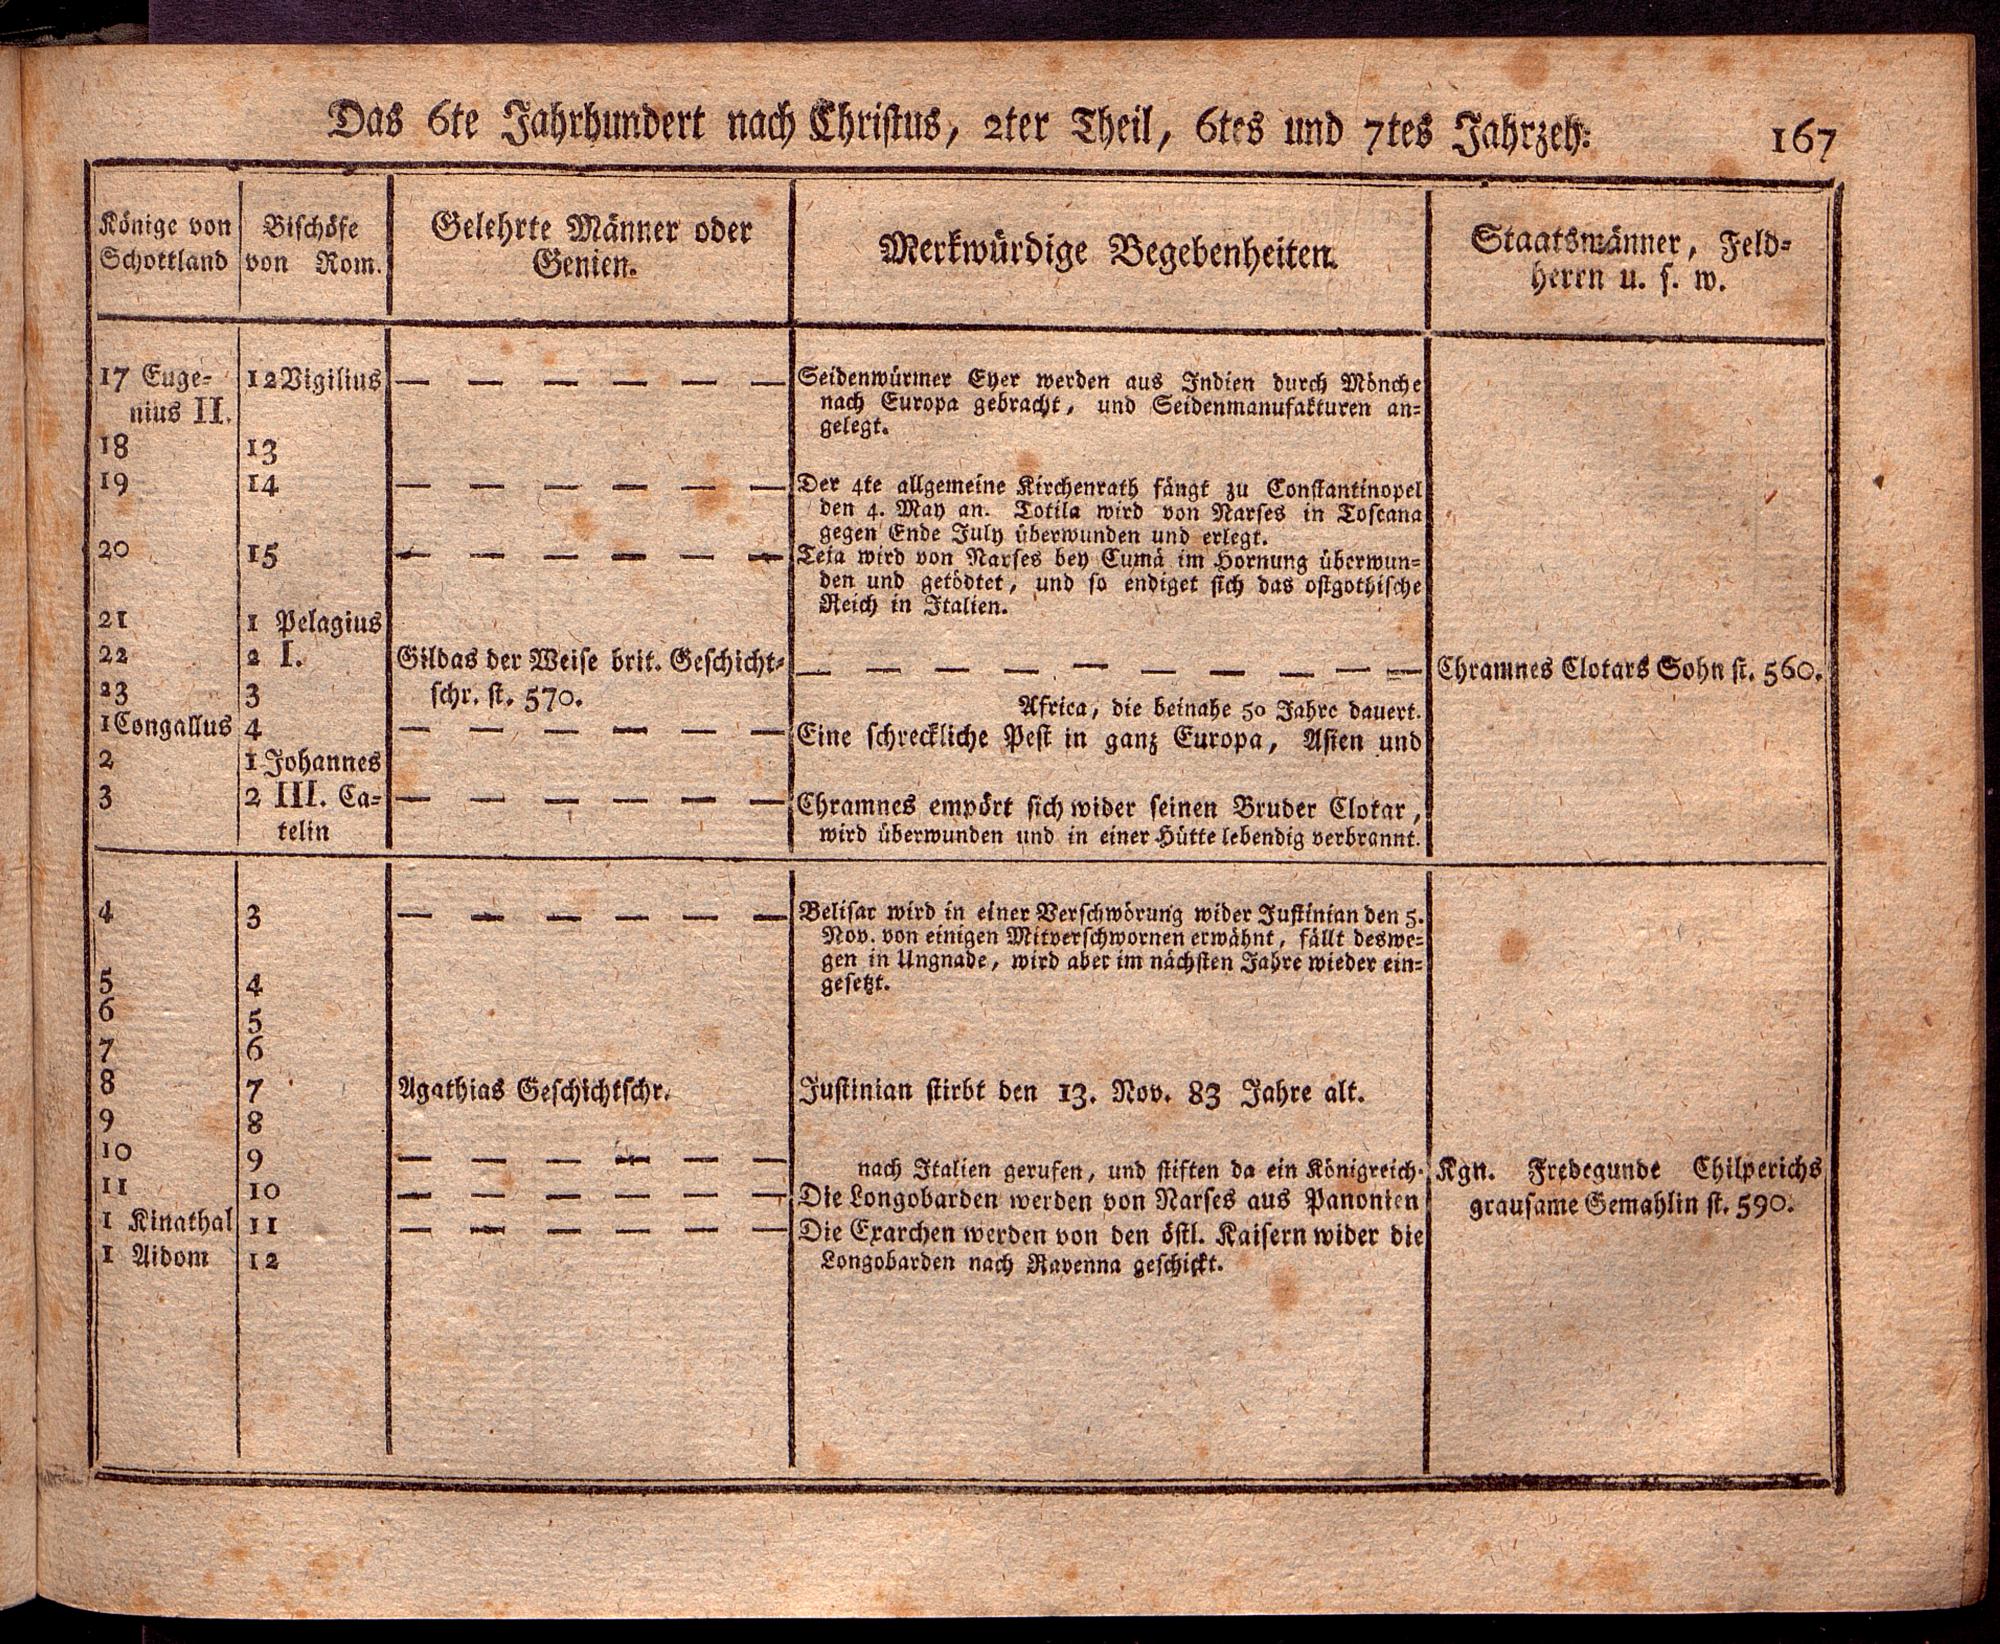 Das 6te Jahrhundert nach Christus, 2ter Theil, 6tes und 7tes Jahrzeh: 167
Könige von Schottland
Bischöfe von Rom.
Gelehrte Männer oder
Genien.
Merkwürdige Begebenheiten.
Staatsmänner, Feld-
herrn u. s. w.
17 Euge- 12 Vigilius — — — — — — Seidenwürmer Eyer werden aus Indien durch Mönche
nius II. nach Europa gebracht, und Seidenmanufakturen an-
gelegt.
18 13
19 14 — — — — — — Der 4te allgemeine Kirchenrath fängt zu Constantinopel
den 4. May an. Totila wird von Narses in Toscana
gegen Ende July überwunden und erlegt.
20 15 — — — — — — Teja wird von Narses bey Cumä im Hornung überwun-
den und getödtet, und so endiget sich das ostgothische
Reich in Italien.
21 1 Pelagius
22 2 I. Gildas der Weise brit. Geschicht- — — — — — — — — — Chramnes Clotars Sohn st. 560.
23 3 schr. st. 570. Africa, die beinahe 50 Jahre dauert.
1 Congallus 4 — — — — — — Eine schreckliche Pest in ganz Europa, Asien und
2 1 Johannes
3 2 III. Ca- — — — — — — Chramnes empört sich wider seinen Bruder Clotar,
telin wird überwunden und in einer Hütte lebendig verbrannt.
4 3 — — — — — — Belisar wird in einer Verschwörung wider Justinian den 5.
Nov. von einigen Mitverschwornen erwähnt, fällt deswe-
gen in Ungnade, wird aber im nächsten Jahre wieder ein-
gesetzt.
5 4
6 5
7 6
8 7 Agathias Geschichtschr. Justinian stirbt den 13. Nov. 83 Jahre alt.
9 8
10 9 — — — — — — nach Italien gerufen, und stiften da ein Königreich. Kgn. Fredegunde Chilperichs
11 10 — — — — — — Die Longobarden werden von Narses aus Panonien grausame Gemahlin st. 590.
1 Kinathal 11 — — — — — — Die Exarchen werden von den östl. Kaisern wider die
1 Aidom 12 Longobarden nach Ravenna geschickt.